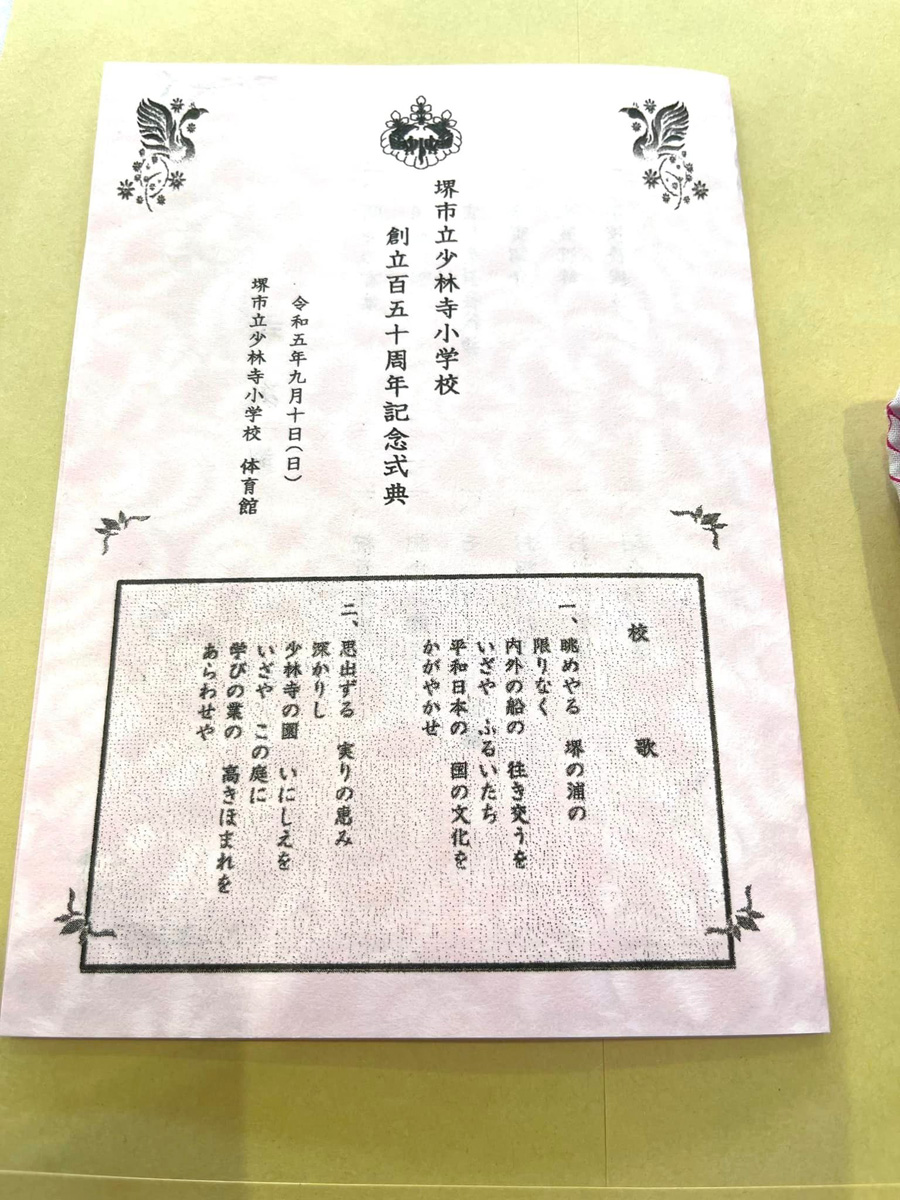 堺市立少林寺小学校
創立百五十周年記念式典
令和五年九月十日(日)
堺市立少林寺小学校 体育館
校 歌
一、眺めやる 堺の浦の
限りなく
内外の船の 往き交うを
いざや ふるいたち
平和日本の 国の文化を
かがやかせ
二、思出ずる 実りの恵み
深かりし
少林寺の園 いにしえを
いざや この庭に
学びの業の 高きほまれを
あらわせや